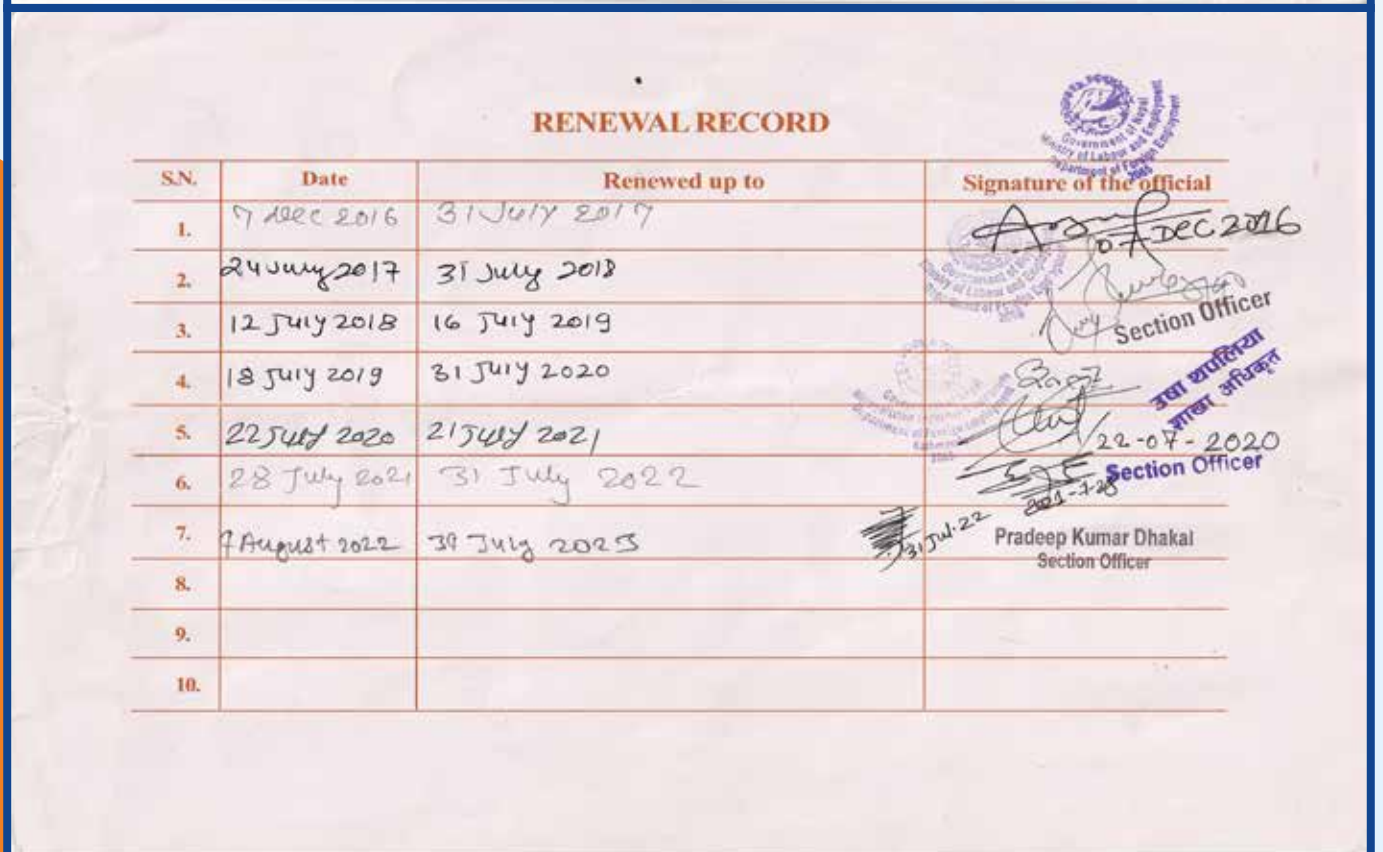 RENEWAL RECORD
Government of Nepal
Ministry of Labour and Employment
Department of Foreign Employment
2065
S.N. Date Renewed up to Signature of the official
1. 7 Dec 2016 31 July 2017
07 DEC 2016
2. 24 July 2017 31 July 2018
Section Officer
3. 12 July 2018 16 July 2019
उषा थपलिया
शाखा अधिकृत
4. 18 July 2019 31 July 2020
5. 22 July 2020 21 July 2021
22-07-2020
Section Officer
6. 28 July 2021 31 July 2022
7. 7 August 2022 July 2023
31 Jul.22
Pradeep Kumar Dhakal
Section Officer
8.
9.
10.